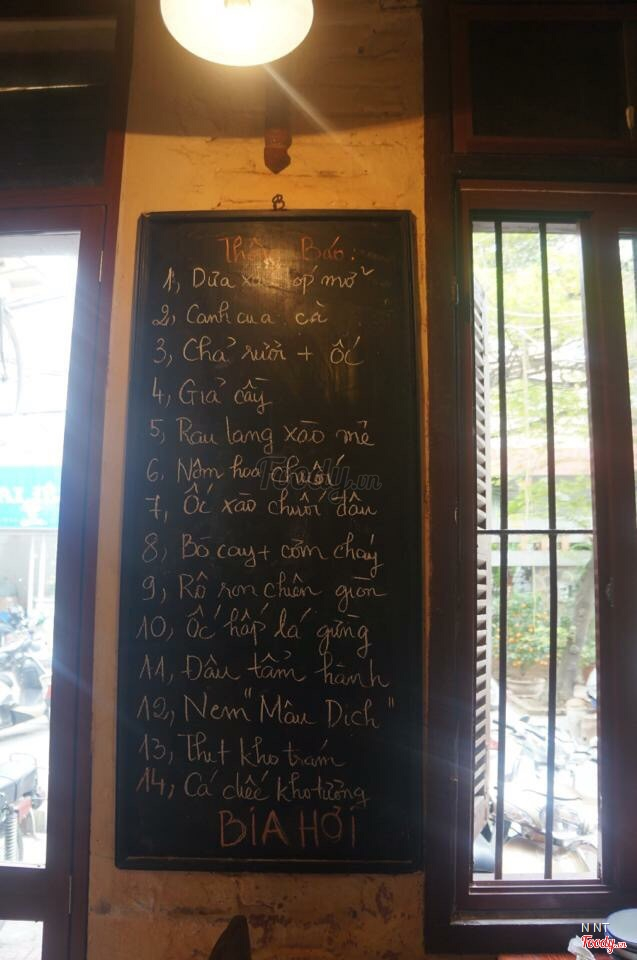 Thông Báo:
1, Dưa xào tóp mỡ
2, Canh cua cà
3, Chả rươi + ốc
4, Giả cầy
5, Rau lang xào mẻ
6. Nộm hoa chuối
7, Ốc xào chuối đậu
8, Bò cay + cơm cháy
9, Rô ron chiên giòn
10, Ốc hấp lá gừng
11, Đậu tẩm hành
12, Nem "Mậu Dịch"
13, Thịt kho trám
14, Cá chéc kho tương
BIA HƠI
Foody.vn
N NT
Foody.vn